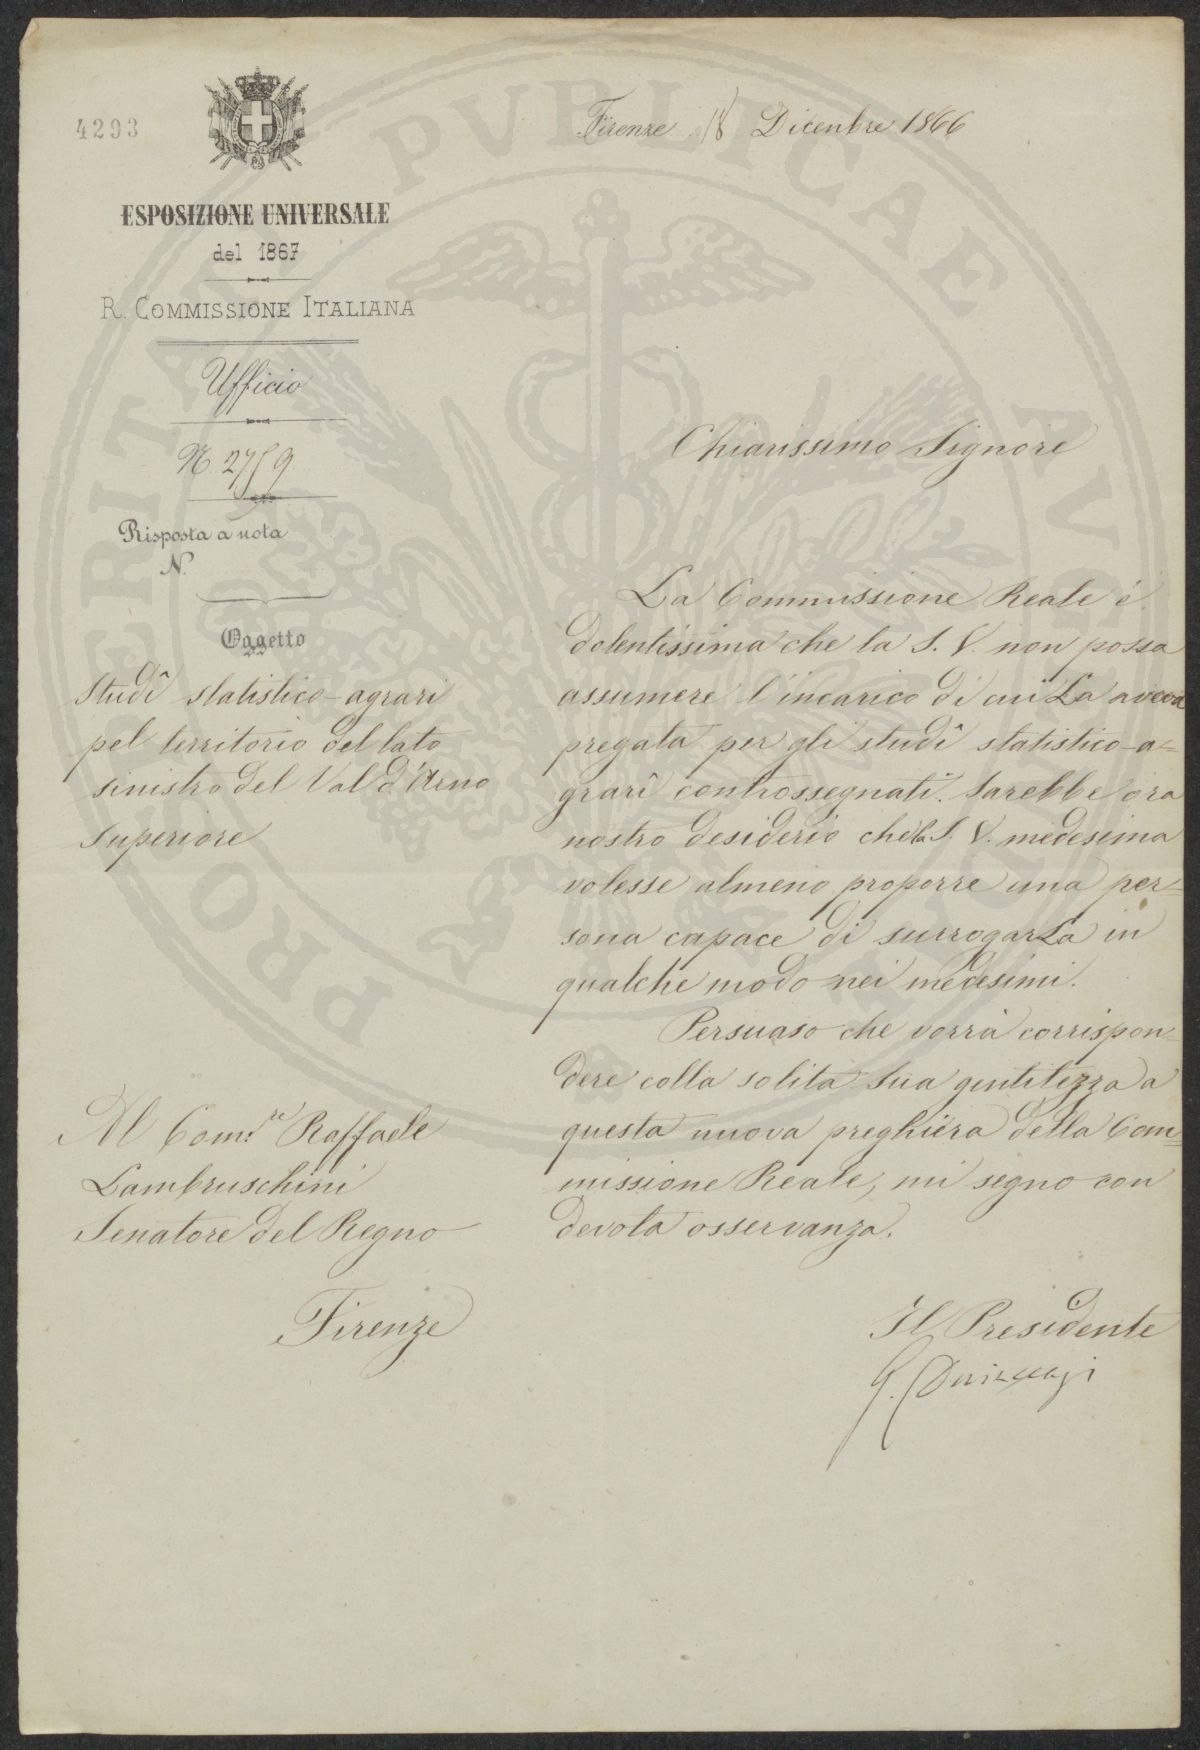 4293
ESPOSIZIONE UNIVERSALE
del 1867
R. COMMISSIONE ITALIANA
Ufficio
N. 2759
Risposta a nota
N.
Oggetto
Studî statistico-agrari
pel territorio del lato
sinistro del Val d'Arno
Superiore
Al Com.re Raffaele
Lambruschini
Senatore del Regno
Firenze
Firenze 18 Dicembre 1866
Chiarissimo Signore
La Commissione Reale é
dolentissima che la S. V. non possa
assumere l'incarico di cui La aveva
pregata per gli studî statistico-a=
grarî controssegnati. Sarebbe ora
nostro desiderio che la S. V. medesima
volesse almeno proporre una per=
sona capace di surrogarLa in
qualche modo nei medesimi.
Persuaso che vorrà corrispon=
dere colla solita Sua gentilezza a
questa nuova preghiera della Com=
missione Reale, mi segno con
devota osservanza.
Il Presidente
G.
PROSPERITATI PVBLICAE AVGENDAE